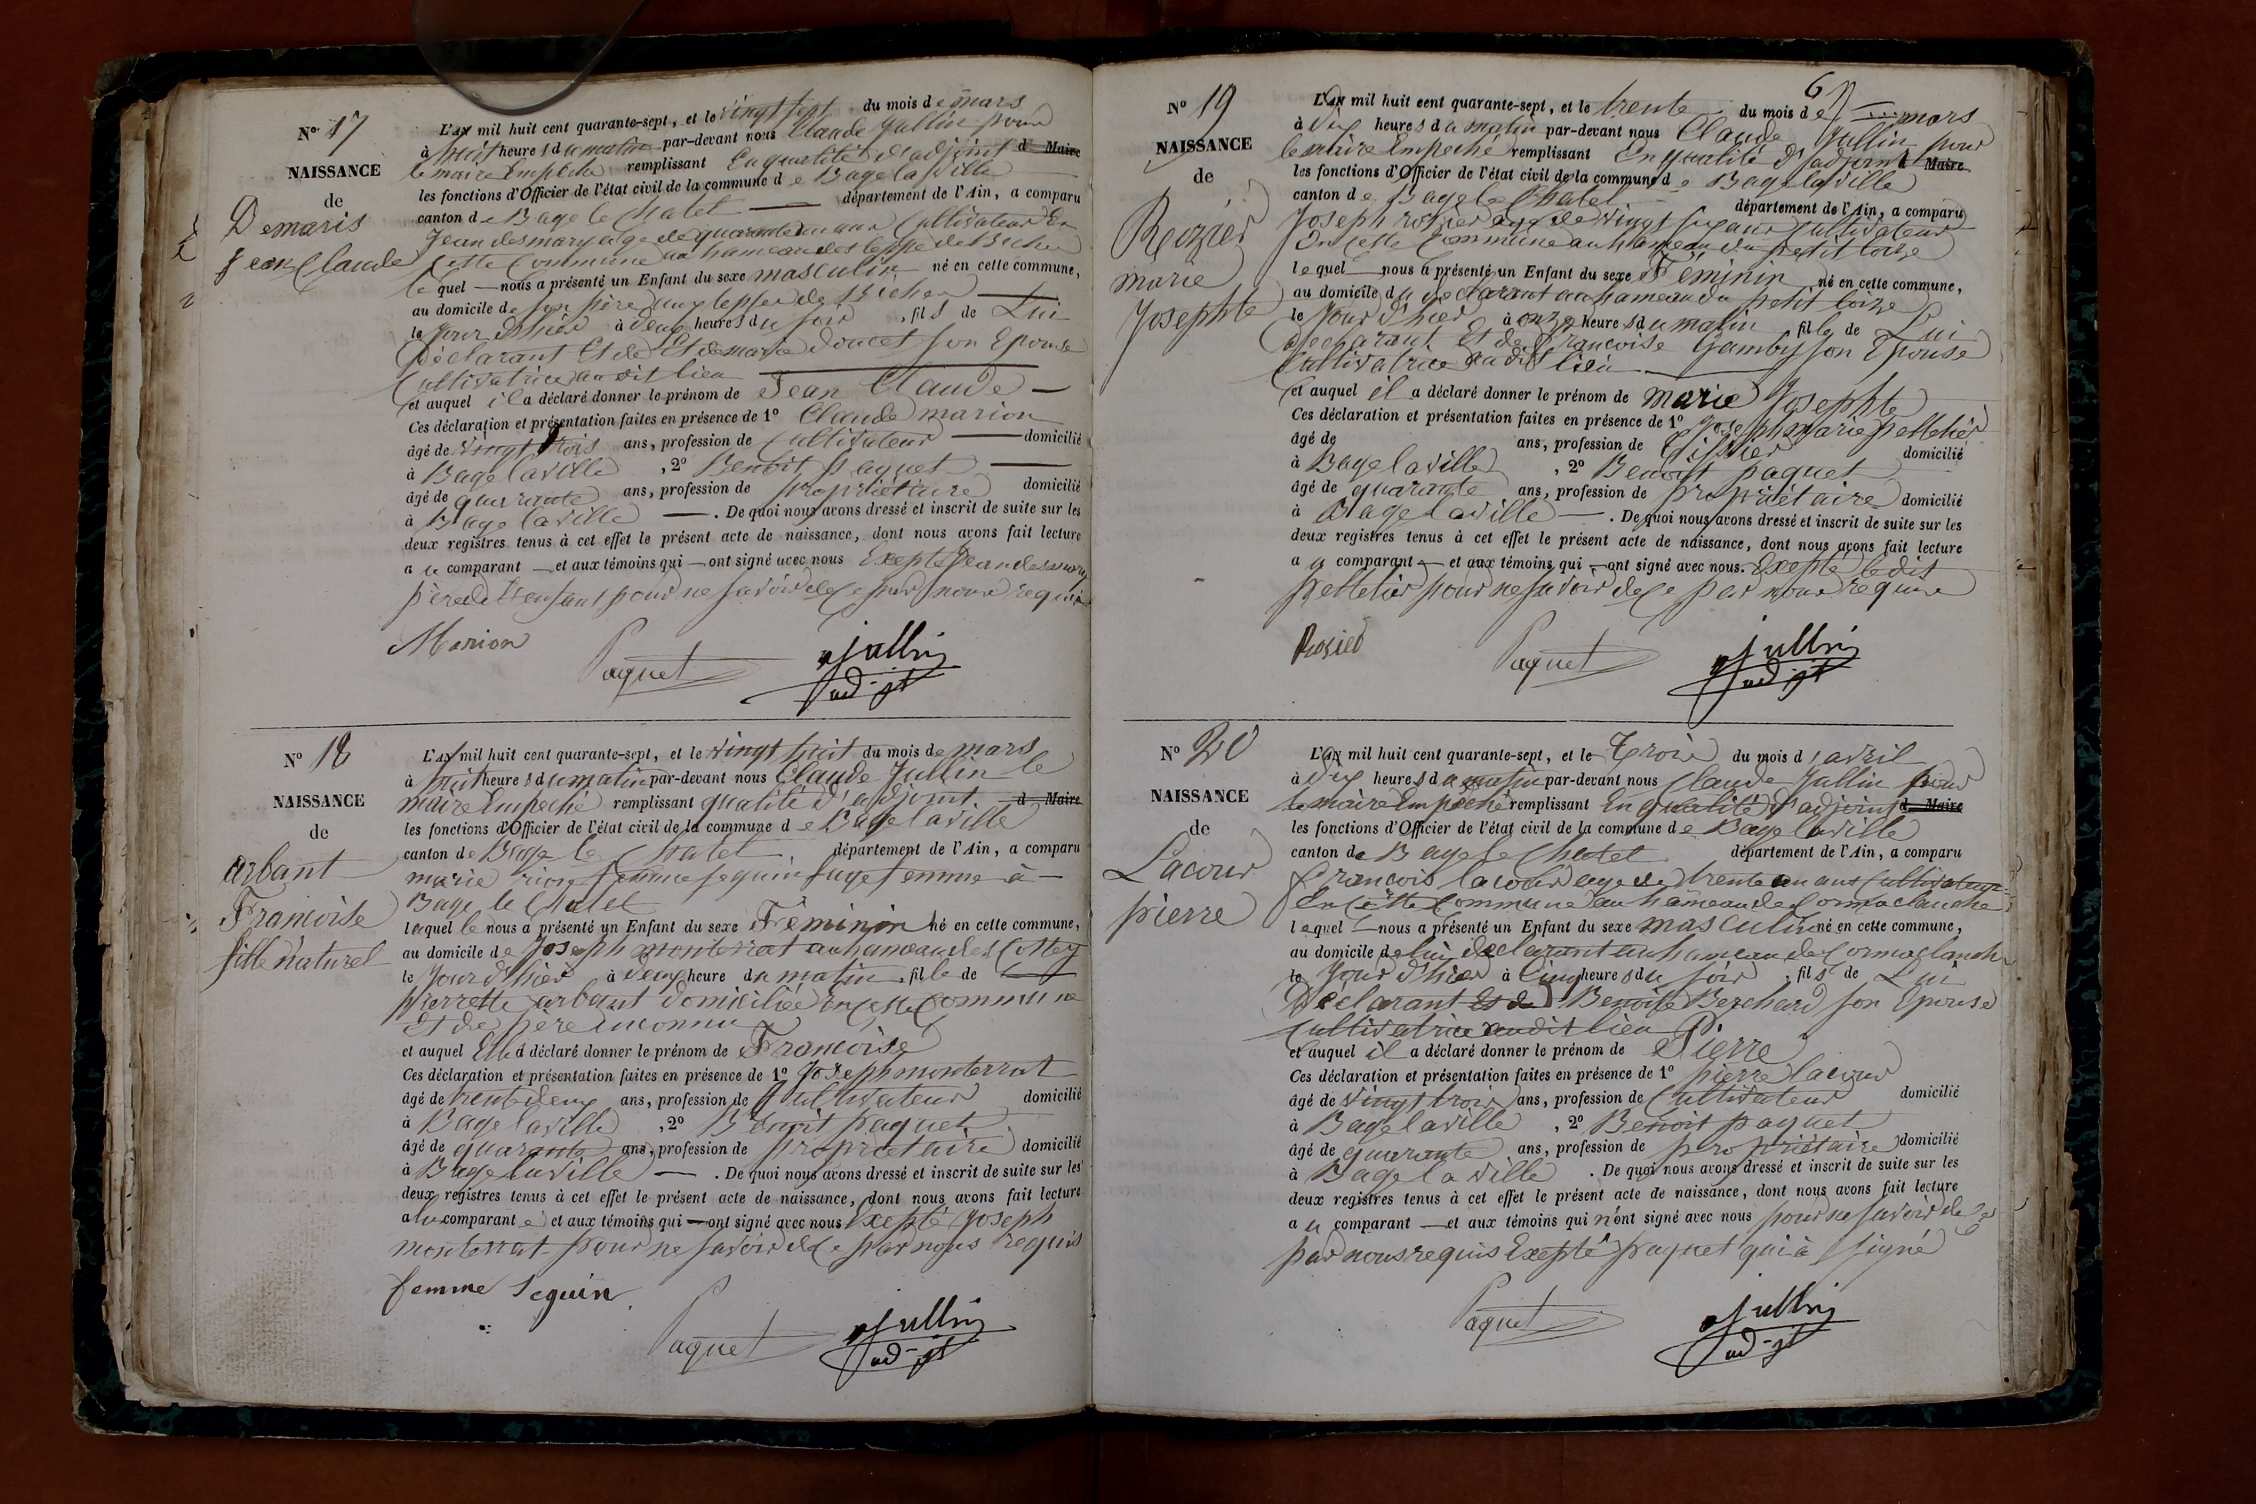 N° 17
NAISSANCE
de
Demaris
Jean Claude
L'AN mil huit cent quarante-sept, et le vingt sept du mois de mars
à huit heures du matin par-devant nous Claude Jullin pour
le maire Empeché remplissant En qualité d'adjoint d Maire
les fonctions d'Officier de l'état civil de la commune de Bage la ville
canton de Bage le Chatel département de l'Ain, a comparu
Jean desmary age de quarante un ans Cultivateur En
cette Commune au hameau des
le quel nous a présenté un Enfant du sexe masculin né en cette commune,
au domicile de son père
le Jour d'hier à deux heures du soir, fils de Lui
Déclarant Et de Et de marie doucet son Epouse
Cultivatrice au dit lieu
et auquel il a déclaré donner le prénom de Jean Claude
Ces déclaration et présentation faites en présence de 1° Claude marion
âgé de vingt trois ans, profession de Cultivateur domicilié
à Bage la ville, 2° Benoit paquet
âgé de quarante ans, profession de propriétaire domicilié
à Bage la ville. De quoi nous avons dressé et inscrit de suite sur les
deux registres tenus à cet effet le présent acte de naissance, dont nous avons fait lecture
au comparant et aux témoins qui ont signé avec nous Excepté Jean desmary
père de l'enfant pour ne savoir de ce par nous requis
Marion
Paquet
Jullin
adjt
N° 18
NAISSANCE
de
arbant
Francoise
fille naturel
L'AN mil huit cent quarante-sept, et le vingt huit du mois de mars
à huit heures du matin par-devant nous Claude Jullin le
maire Empeché remplissant qualité d'adjoint d Maire
les fonctions d'Officier de l'état civil de la commune de Bage la ville
canton de Bage le Chatel département de l'Ain, a comparu
marie femme seguin sage femme à
Bage le Chatel
laquel le nous a présenté un Enfant du sexe Féminin né en cette commune,
au domicile de Joseph monterrat au hameau des Cottey
le Jour d'hier à deux heure du matin, fille de
pierrette arbant domiciliée En cette Commune
Et de père inconnu
et auquel Elle a déclaré donner le prénom de Francoise
Ces déclaration et présentation faites en présence de 1° Joseph monterrat
âgé de trente deux ans, profession de Cultivateur domicilié
à Bage la ville, 2° Benoit paquet
âgé de quarante ans, profession de propriétaire domicilié
à Bage la ville. De quoi nous avons dressé et inscrit de suite sur les
deux registres tenus à cet effet le présent acte de naissance, dont nous avons fait lecture
a la comparante et aux témoins qui ont signé avec nous Excepté Joseph
monterrat pour ne savoir de ce par nous requis
femme Seguin
Paquet
Jullin
adjt
67
N° 19
NAISSANCE
de
Rozier
marie
Josephte
L'AN mil huit cent quarante-sept, et le trente du mois de mars
à dix heures du matin par-devant nous Claude Jullin pour
le maire Empeché remplissant En qualité d'adjoint d Maire
les fonctions d'Officier de l'état civil de la commune de Bage la ville
canton de Bage le Chatel département de l'Ain, a comparu
Joseph rozier age de vingt six ans Cultivateur
En cette Commune au hameau du petit loize
le quel nous a présenté un Enfant du sexe Féminin né en cette commune,
au domicile du déclarant au hameau du petit loize
le Jour d'hier à onze heures du matin fille de Lui
déclarant Et de Francoise Gamby son Epouse
Cultivatrice au dit lieu
et auquel il a déclaré donner le prénom de marie Josephte
Ces déclaration et présentation faites en présence de 1° Joseph marie pelletier
âgé de ans, profession de Tissier domicilié
à Bage la ville, 2° Benoit paquet
âgé de quarante ans, profession de propriétaire domicilié
à Bage la ville. De quoi nous avons dressé et inscrit de suite sur les
deux registres tenus à cet effet le présent acte de naissance, dont nous avons fait lecture
au comparant et aux témoins qui ont signé avec nous. Excepté le dit
pelletier pour ne savoir de ce par nous requis
Rozier
Paquet
Jullin
adjt
N° 20
NAISSANCE
de
Lacour
pierre
L'AN mil huit cent quarante-sept, et le Trois du mois d'avril
à dix heures du matin par-devant nous Claude Jullin pour
le maire Empeché remplissant En qualité d'adjoint d Maire
les fonctions d'Officier de l'état civil de la commune de Bage la ville
canton de Bage le Chatel département de l'Ain, a comparu
Francois lacour age de trente un ans Cultivateur
En cette Commune au hameau de Cormaclanche
le quel nous a présenté un Enfant du sexe masculin né en cette commune,
au domicile de lui déclarant au hameau de Cormaclanche
le Jour d'hier à Cinq heures du soir, fils de Lui
Déclarant Et de Benoite Berchard son Epouse
Cultivatrice au dit lieu
et auquel il a déclaré donner le prénom de Pierre
Ces déclaration et présentation faites en présence de 1° pierre lacour
âgé de vingt trois ans, profession de Cultivateur domicilié
à Bage la ville, 2° Benoit paquet
âgé de quarante ans, profession de propriétaire domicilié
à Bage la ville. De quoi nous avons dressé et inscrit de suite sur les
deux registres tenus à cet effet le présent acte de naissance, dont nous avons fait lecture
au comparant et aux témoins qui n'ont signé avec nous pour ne savoir de ce
par nous requis Excepté paquet qui à signé
Paquet
Jullin
adjt